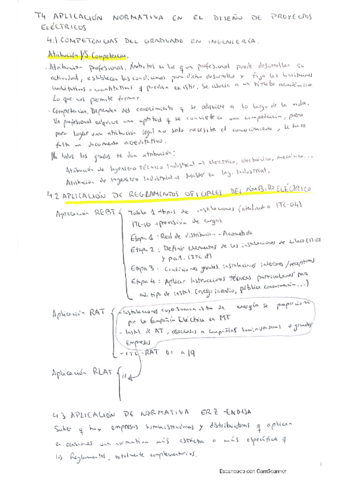 T4 APLICACIÓN NORMATIVA EN EL DISEÑO DE PROYECTOS
ELÉCTRICOS
4.1 COMPETENCIAS DEL GRADUADO EN INGENIERÍA.
Atribución VS Competencia.
- Atribución profesional. Ámbitos en los que profesional puede desarrollar su
actividad, establece las condiciones para dicho desarrollo y fija las limitaciones
cualitativas o cuantitativas si precisa existir. Se obtiene a un título académico
Lo que nos permite firmar.
- Competencia. Dependen del conocimiento y se adquiere a lo largo de la vida.
Un profesional adquiere una aptitud y se convierte en una competencia, pero
para lograr una atribución legal no solo necesita el conocimiento, le hace
falta un documento acreditativo.
No todos los grados te dan atribución:
Atribución de Ingeniero Técnico Industrial al eléctrico, electrónico, mecánico...
Atribución de Ingeniero Industrial al Máster en Ing. Industrial.
4.2 APLICACIÓN DE REGLAMENTOS OFICIALES DEL ÁMBITO ELÉCTRICO
Aplicación REBT
Tabla 1 tipos de instalaciones (ITC-04)
ITC-10 previsión de cargas
Etapa 1: Red de distribución - Acometida
Etapa 2: Definir elementos de las instalaciones de enlace
Etapa 3: Condiciones generales instalaciones interiores/receptoras
Etapa 4: Aplicar Instrucciones técnicas particulares para
cada tipo de instal.
Aplicación RAT
- Instalaciones cuyo suministro de energía se proporciona
por la Compañía Eléctrica en MT
- Instal. de AT, asociadas a compañías suministradoras o grandes
empresas
- ITC-RAT 01 a 19
Aplicación RLAT
"
4.3 APLICACIÓN DE NORMATIVA ERZ-ENDESA
Saber q hay empresas suministradoras y distribuidoras q aplican
en ocasiones una normativa más estricta o más específica q
los Reglamentos, totalmente complementarios.
Escaneado con CamScanner